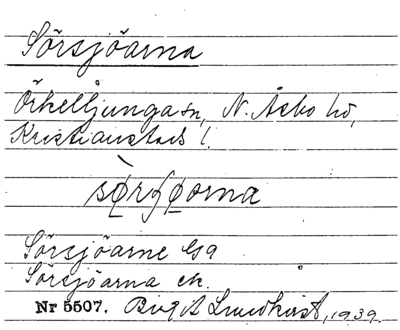 Sörsjöarna
Örkelljunga sn, N. Åsbo hd,
Kristianstads l.
Sörsjöarne
Sörsjöarna ek.
Nr 5507. Birgit Lundkvist, 1939.